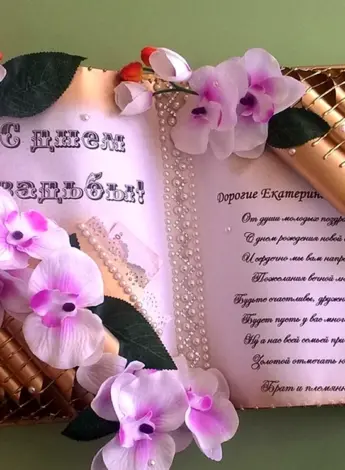 С днем
свадьбы!
Дорогие Екатерина
От души молодых поздра
С днем рождения новой
И сердечно мы вам напр
Пожелания вечной лю
Будьте счастливы, дружн
Будет пусть у вас мног
Ну а нас всей семьей при
Золотой отмечать ю
Брат и племянн